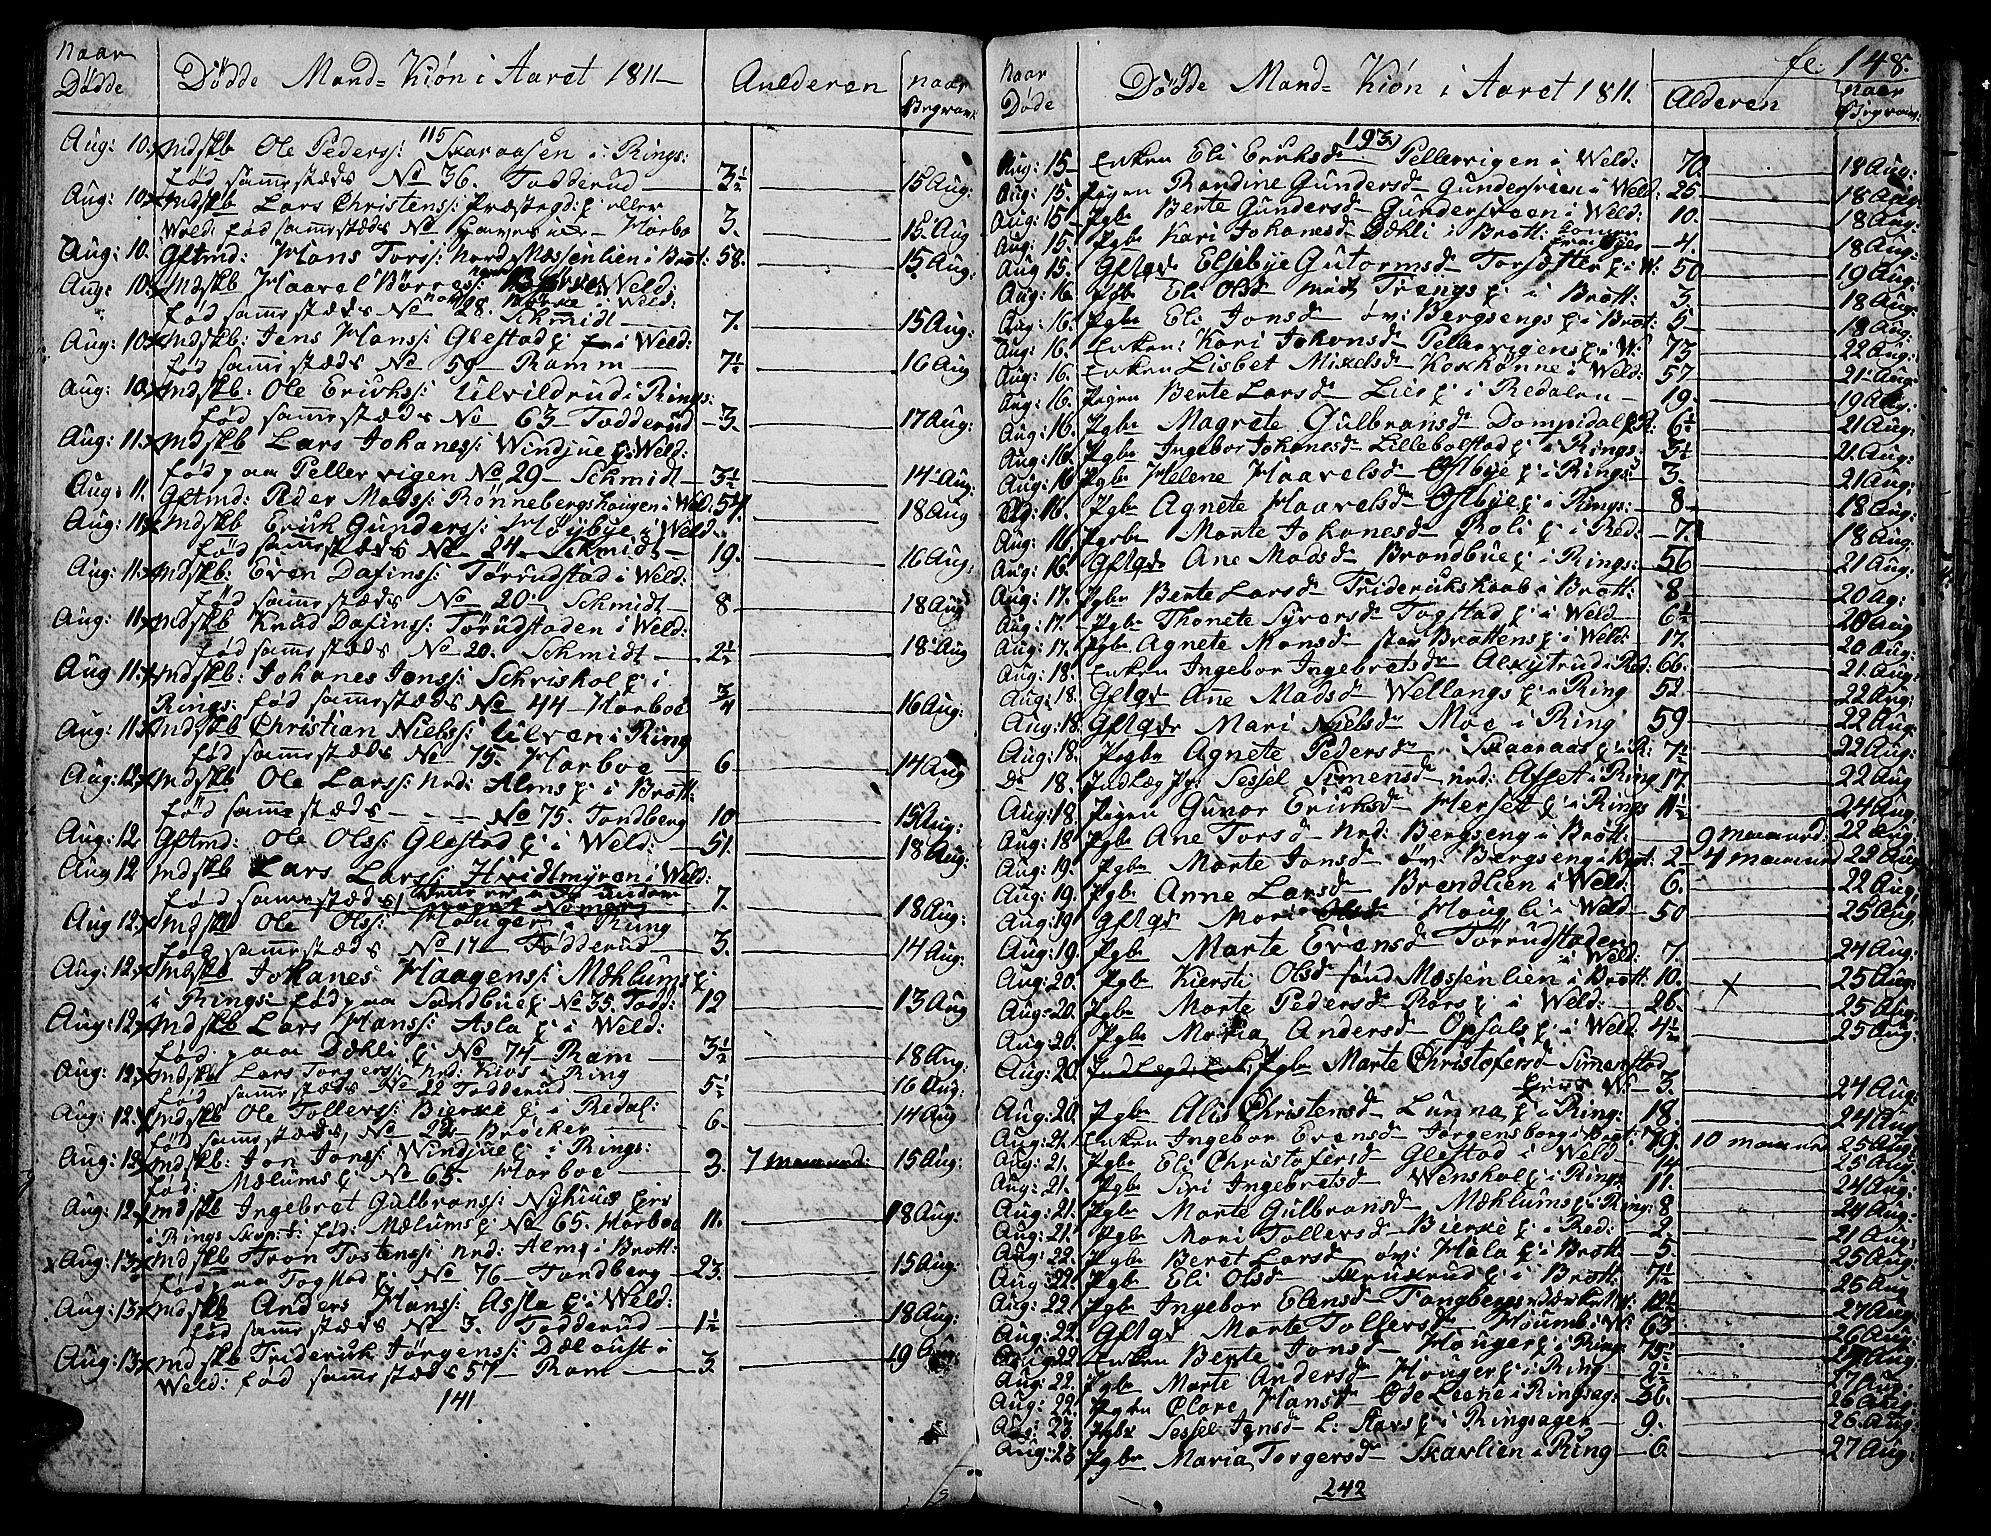 Naar Dödde
Dödde Mand-Kiön i Aaret 1811
Aulderen
naar Begravet
115
Aug: 10. Mdskb Ole Pederss: Skaraasen i Rings:
fød sammestæds No 36. Todderud 3½ 15 Aug:
Aug: 10. Mdskb Lars Christenss: Præstegd: eller
Weld: fød sammestæds No Horbo 3. 15 Aug
Aug: 10. Gftmd: Hans Torss: Nord Mæssenlien i Brøt: 58. 15 Aug:
Aug: 10. Mdskb Haavel Börress: Weld:
fød sammestæds No 28. Schmidt 7. 15 Aug:
Aug: 10. Mdskb: Jens Hanss: Glestad i Weld:
fød sammestæds No 59 Ramm 7½ 16 Aug
Aug: 10. Mdskb: Ole Erichss: Ulvildrud i Rings:
fød sammestæds No 63 Todderud 3. 17 Aug:
Aug: 11. Mdskb Lars Johaness: Windjue i Weld:
fød paa Pellervigen No 29 Schmidt 3½ 14 Aug:
Aug: 11. Gftmd: Peder Madss: Rönnebergshaugen i Weld: 54. 18 Aug
Aug: 11. Mdskb Erich Gunderss: Höybye i Weld.
fød sammestæds No 24 Schmidt 19. 16 Aug:
Aug: 11. Mdskb: Even Dafinss: Törrudstad i Weld:
fød sammestæds No 20 Schmidt 8 18 Aug
Aug: 11. Mdskb Knud Dafinss: Törudstaden i Weld:
fød sammestæds No 20. Schmidt 2½ 18 Aug
Aug 11. Mdskb: Johanes Jonss: Schriskol i
Rings: fød sammestæds No 44 Horboe ¾ 16 Aug:
Aug: 11. Mdskb Christian Nielss: Ulven i Ring
fød sammestæds No 75. Horboe 6 14 Aug
Aug: 12. Mdskb Ole Larss: Nrd: Alms i Brøtt:
fød sammestæds No 75. Tondberg 10 15 Aug:
Aug: 12 Gftmd: Ole Olss: Glestad i Weld: 51. 18 Aug:
Aug 12 Mdskb Lars Larss: Hvidtmyren i Weld:
fød sammestæds 7. 18 Aug:
Aug: 12. Mdskb Ole Olss: Houger i Ring
fød sammestæds No 17 Todderud 3. 14 Aug:
Aug: 12. Mdskb Johanes Haagenss: Mæhlums
i Rings: fød paa Sandbue No 35. Todd: 12 13 Aug
Aug: 12. Mdskb Lars Hanss: Asla i Weld:
fød paa Dæhli No 74 Ram 3½ 18 Aug:
Aug: 12. Mdskb Lars Torgerss: Nrd: Kios i Ring
fød sammestæds No 22 Todderud 5½ 16 Aug:
Aug: 12. Mdskb Ole Tollerss: Bierke i Redal:
fød sammestæds, No 22 Bröcker 6 14 Aug
Aug: 12. Mdskb: Jon Jonss: Windjue i Rings:
fød: Mælums No 65. Horboe 3. 7 maaned: 15 Aug:
Aug: 12. Mdskb Ingebrat Gulbranss: Nyhuus
i Rings fød: Mælums No 65. Horboe 11. 18 Aug:
Aug: 13. Mdskb Tron Tostenss: Nrd: Alm i Brøtt:
fød paa Togstad No 76 Tondberg 23. 15 Aug:
Aug: 13. Mdskb Anders Hanss: Assla i Weld:
fød sammestæds No 3. Todderud 1½ 18 Aug:
Aug: 13. Mdskb Friderich Jørgenss: i
Weld: fød sammestæds 57 Ram 3. 19 Aug:
141
fc: 148.
naar Døde
Dødde Mand-Kiön i Aaret 1811.
Alderen
naar Begravet
193
Aug: 15 Enken Eli Eriksd Pellervigen i Weld: 70. 18 Aug:
Aug: 15. Pigen Randine Gundersd Gundersveen i Weld: 25 18 Aug:
Aug: 15 Pgbr Berte Gundersd Gundersveen i Weld: 10. 18 Aug:
Aug: 15. Pgbr Kari Johanesd Dæhli i Brøtt: 4. 18 Aug:
Aug 15. Gftqd Elsebye Gutormsd Torsætter i W: 50 19 Aug:
Aug: 16. Pgbr Eli Olsd Trengs i Brøtt: 3. 18 Aug:
Aug: 16. Pgbr Eli Jonsd öv: Bergsengs i Brøt: 5 18 Aug:
Aug: 16. Enken: Kari Johansd Pellervigens i W: 73 22 Aug:
Aug: 16. Enken Lisbet Mikelsd Koxhønne i Weld: 57 21 Aug:
Aug: 16. Pigen Berte Larsd Lier i Redalen 19. 19 Aug:
Aug: 16. Pgbr Magrete Gulbransd Dompidal R: 6½ 21 Aug:
Aug: 16. Pgbr Ingebor Johanesd Lillebolstad i Rings: 3½ 21 Aug:
Aug: 16 Pgbr Helene Haavelsd Ostbye i Rings: 3. 21 Aug:
Aug: 16. Pgbr Agnete Haavelsd Ostbye i Rings: 8 18 Aug:
Aug: 16. Pgbr Marte Johanesd Roli i Red: 7. 18 Aug:
Aug: 16. Gftqd Ane Madsd Brandbue i Rings: 56 21 Aug:
Aug: 17. Pgbr Berte Larsd Friderikskaab i Brøtt: 8 20 Ag:
Aug: 17. Pgbr Thonete Syversd Togstad i Weld 6½ 20 Aug
Aug: 17. Pgbr Agnete Monsd stor Bröttens i Weld: 17. 20 Aug:
Aug: 18. Enken Ingebor Ingebretsdr Alkytrud i Red: 66. 21. Aug:
Aug: 18. Gftqd Anne Madsd Wellangs i Ring 52 22 Aug:
Aug: 18. Gftqd Mari Nielsdr Moe i Ring 59 22 Aug:
Aug: 18. Pgbr Agnete Pedersd Skaaraas i R: 7½ 22 Aug:
Do 18. Indlæg Pg: Sessel Simensd nrd: Asset i Ring 17. 22 Aug
Aug: 18. Pigen Gunor Ericksd Herset i Rings 11½ 24 Aug:
Aug: 18 Pgbr Ane Torsd Nrd: Bergseng i Brøtt: 9 maaned: 22 Aug:
Aug: 19. Pgbr Marte Jonsd öv: Bergseng i Brøt: 2 4 maaned 22 Aug:
Aug: 19. Pgbr Anne Larsd Brendlien i Weld: 6. 22 Aug:
Aug: 19 Gftqd Mari Olsd Houg i Weld 50 25 Aug:
Aug: 19. Pgbr Marte Evensd Törrudstaden i Weld: 7. 24 Aug:
Aug: 20. Pgbr Kiersti Olsd sønd Mæssenlien i Brøtt: 10. x 25 Aug:
Aug: 20. Pgbr Marte Pedersd Rörs i Weld: 26. 25 Aug:
Aug: 20. Pgbr Maria Andersd Opsals i Weld. 4½ 25 Aug:
Aug: 20. Pgbr Marte Christofersd Simenstad
3. 24 Aug:
Aug: 20. Pgbr Alis Christensd Lunna i Ring: 18. 24 Aug:
Aug: 21. Enken Ingebor Evensd Jørgensborg i Brøt: 79. 10 maaned 25 Aug:
Aug: 21. Pgbr Eli Christofersd Glestad i Weld 14 25 Aug:
Aug: 21. Pgbr Siri Ingebretsd Wenskol i Rings: 11. 24 Aug:
Aug: 21. Pgbr Marte Gulbransd Mæhlums i Ring: 8 24 Aug:
Aug: 21. Pgbr Mari Tollersd Bierke i Red: 2 21 Aug:
Aug: 22. Pgbr Beret Larsd öv: Hala i Brøtt 5. 25 Aug:
Aug: 22. Pgbr Eli Olsd Skruxrud i Brøtt: 7½ 26 Aug
Aug: 22. Pgbr Ingebor Elensd 12½ 27 Aug:
Aug: 22. Gftqd Marte Tollersd Houmb W: 63. 26 Aug:
Aug: 22. Enken Berte Jonsd Houger i Rings 75½ 27 Aug:
Aug: 22. Pgbr Marte Andersd Houger i Ring 2½ 27 Aug:
Aug: 22. Pigen Olare Hansd Ode Leene i Ringsag: 36. 26 Aug:
Aug: 23. Pgbr Sessel Jonsd L: Stafs i Ringsager 9. 26. Aug:
Aug: 23 Pgbr Maria Torgersd Skavlien i Ring 6. 27 Aug:
242